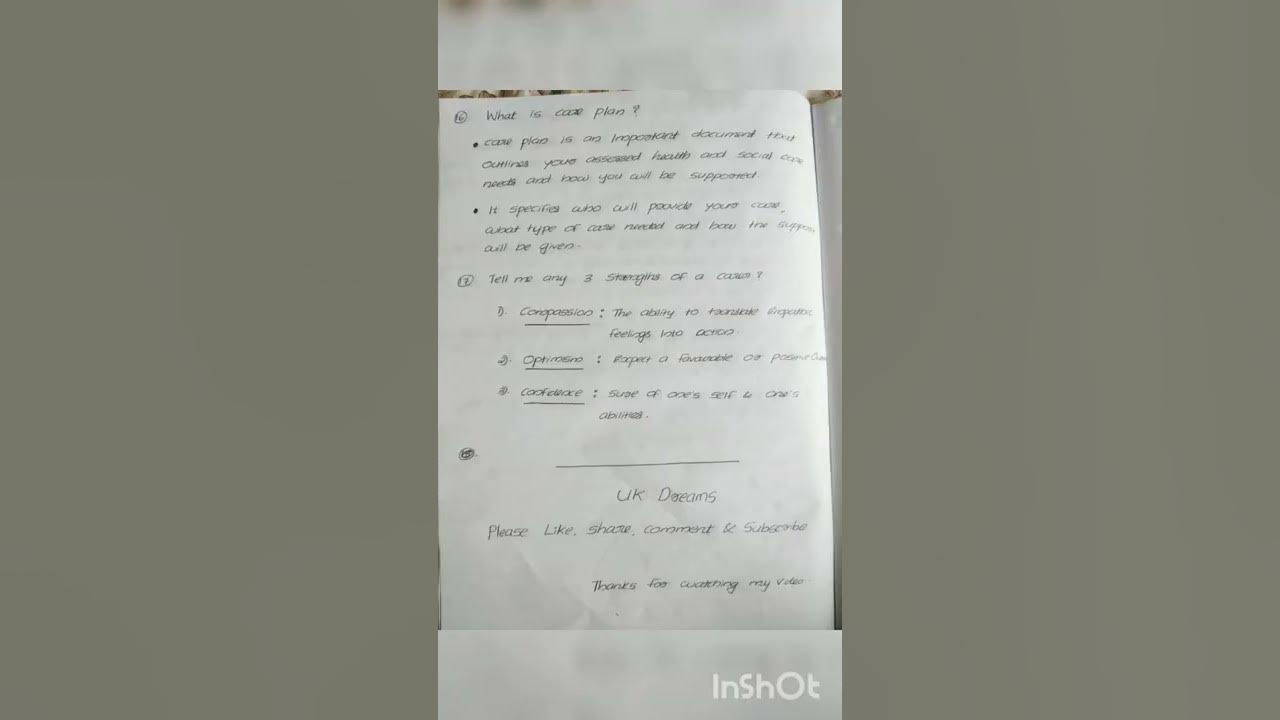 16 What is care plan?
• care plan is an important document that
outlines your assessed health and social care
needs and how you will be supported.
• It specifies who will provide your care,
what type of care needed and how the support
will be given.
17 Tell me any 3 strengths of a carer?
1). Compassion : The ability to translate Empathic
feelings into action.
2). Optimism : Expect a favourable or positive
3). Confidence : Sure of one's self & one's
abilities.
UK Dreams
Please Like, share, comment & Subscribe
Thanks for watching my video
InShOt